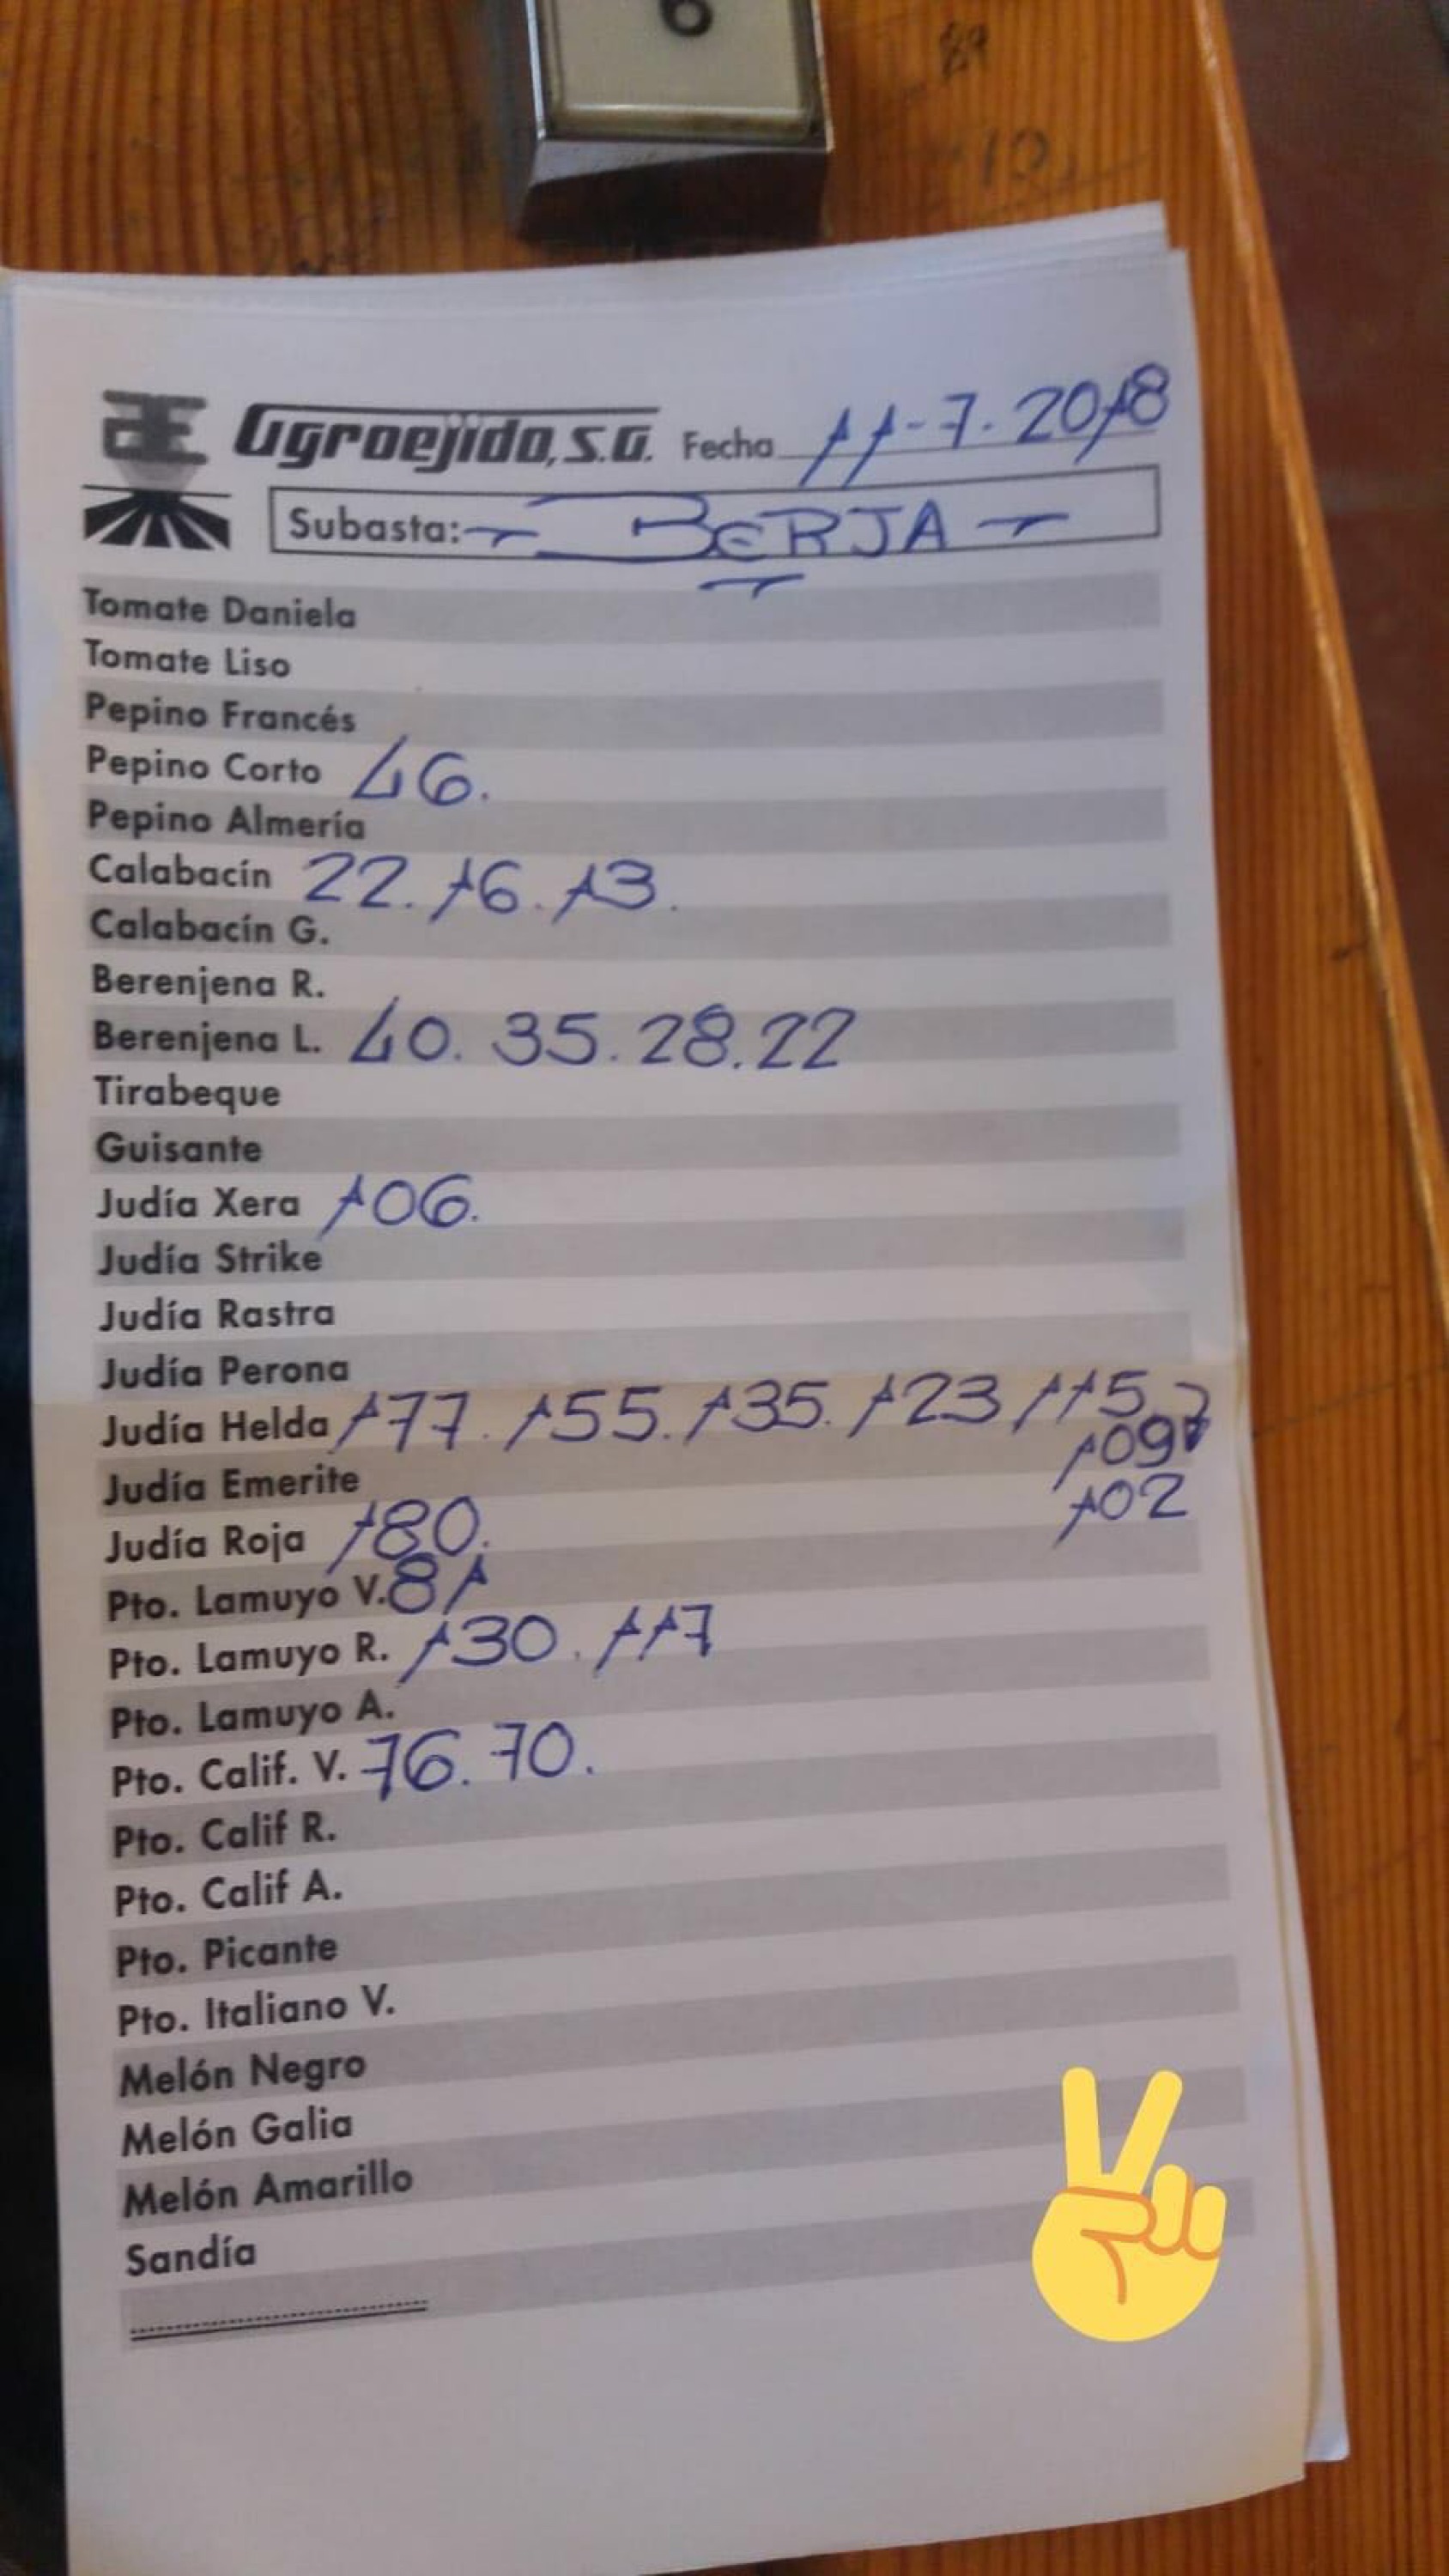 6
Agroejido, S.A. Fecha 11-7-2018
Subasta: - BERJA -
Tomate Daniela
Tomate Liso
Pepino Francés
Pepino Corto 46.
Pepino Almería
Calabacín 22. 16. 13.
Calabacín G.
Berenjena R.
Berenjena L. 40. 35. 28. 22
Tirabeque
Guisante
Judía Xera 106.
Judía Strike
Judía Rastra
Judía Perona
Judía Helda 177. 155. 135. 123 115
109
Judía Emerite
102
Judía Roja 180.
Pto. Lamuyo V. 81
Pto. Lamuyo R. 130. 117
Pto. Lamuyo A.
Pto. Calif. V. 76. 70.
Pto. Calif R.
Pto. Calif A.
Pto. Picante
Pto. Italiano V.
Melón Negro
Melón Galia
Melón Amarillo
Sandía